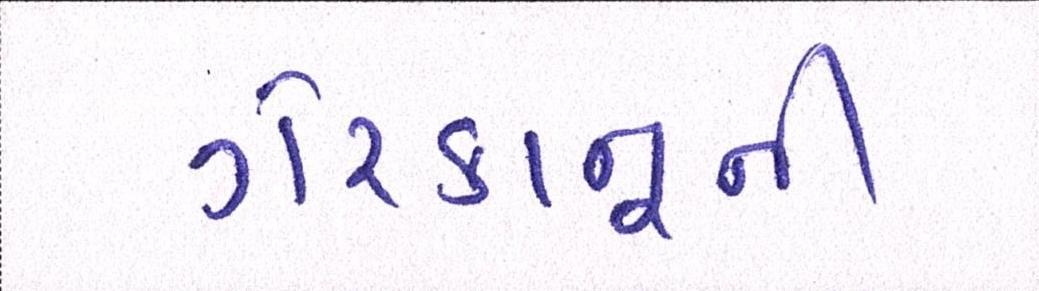 ગેરકાનૂની